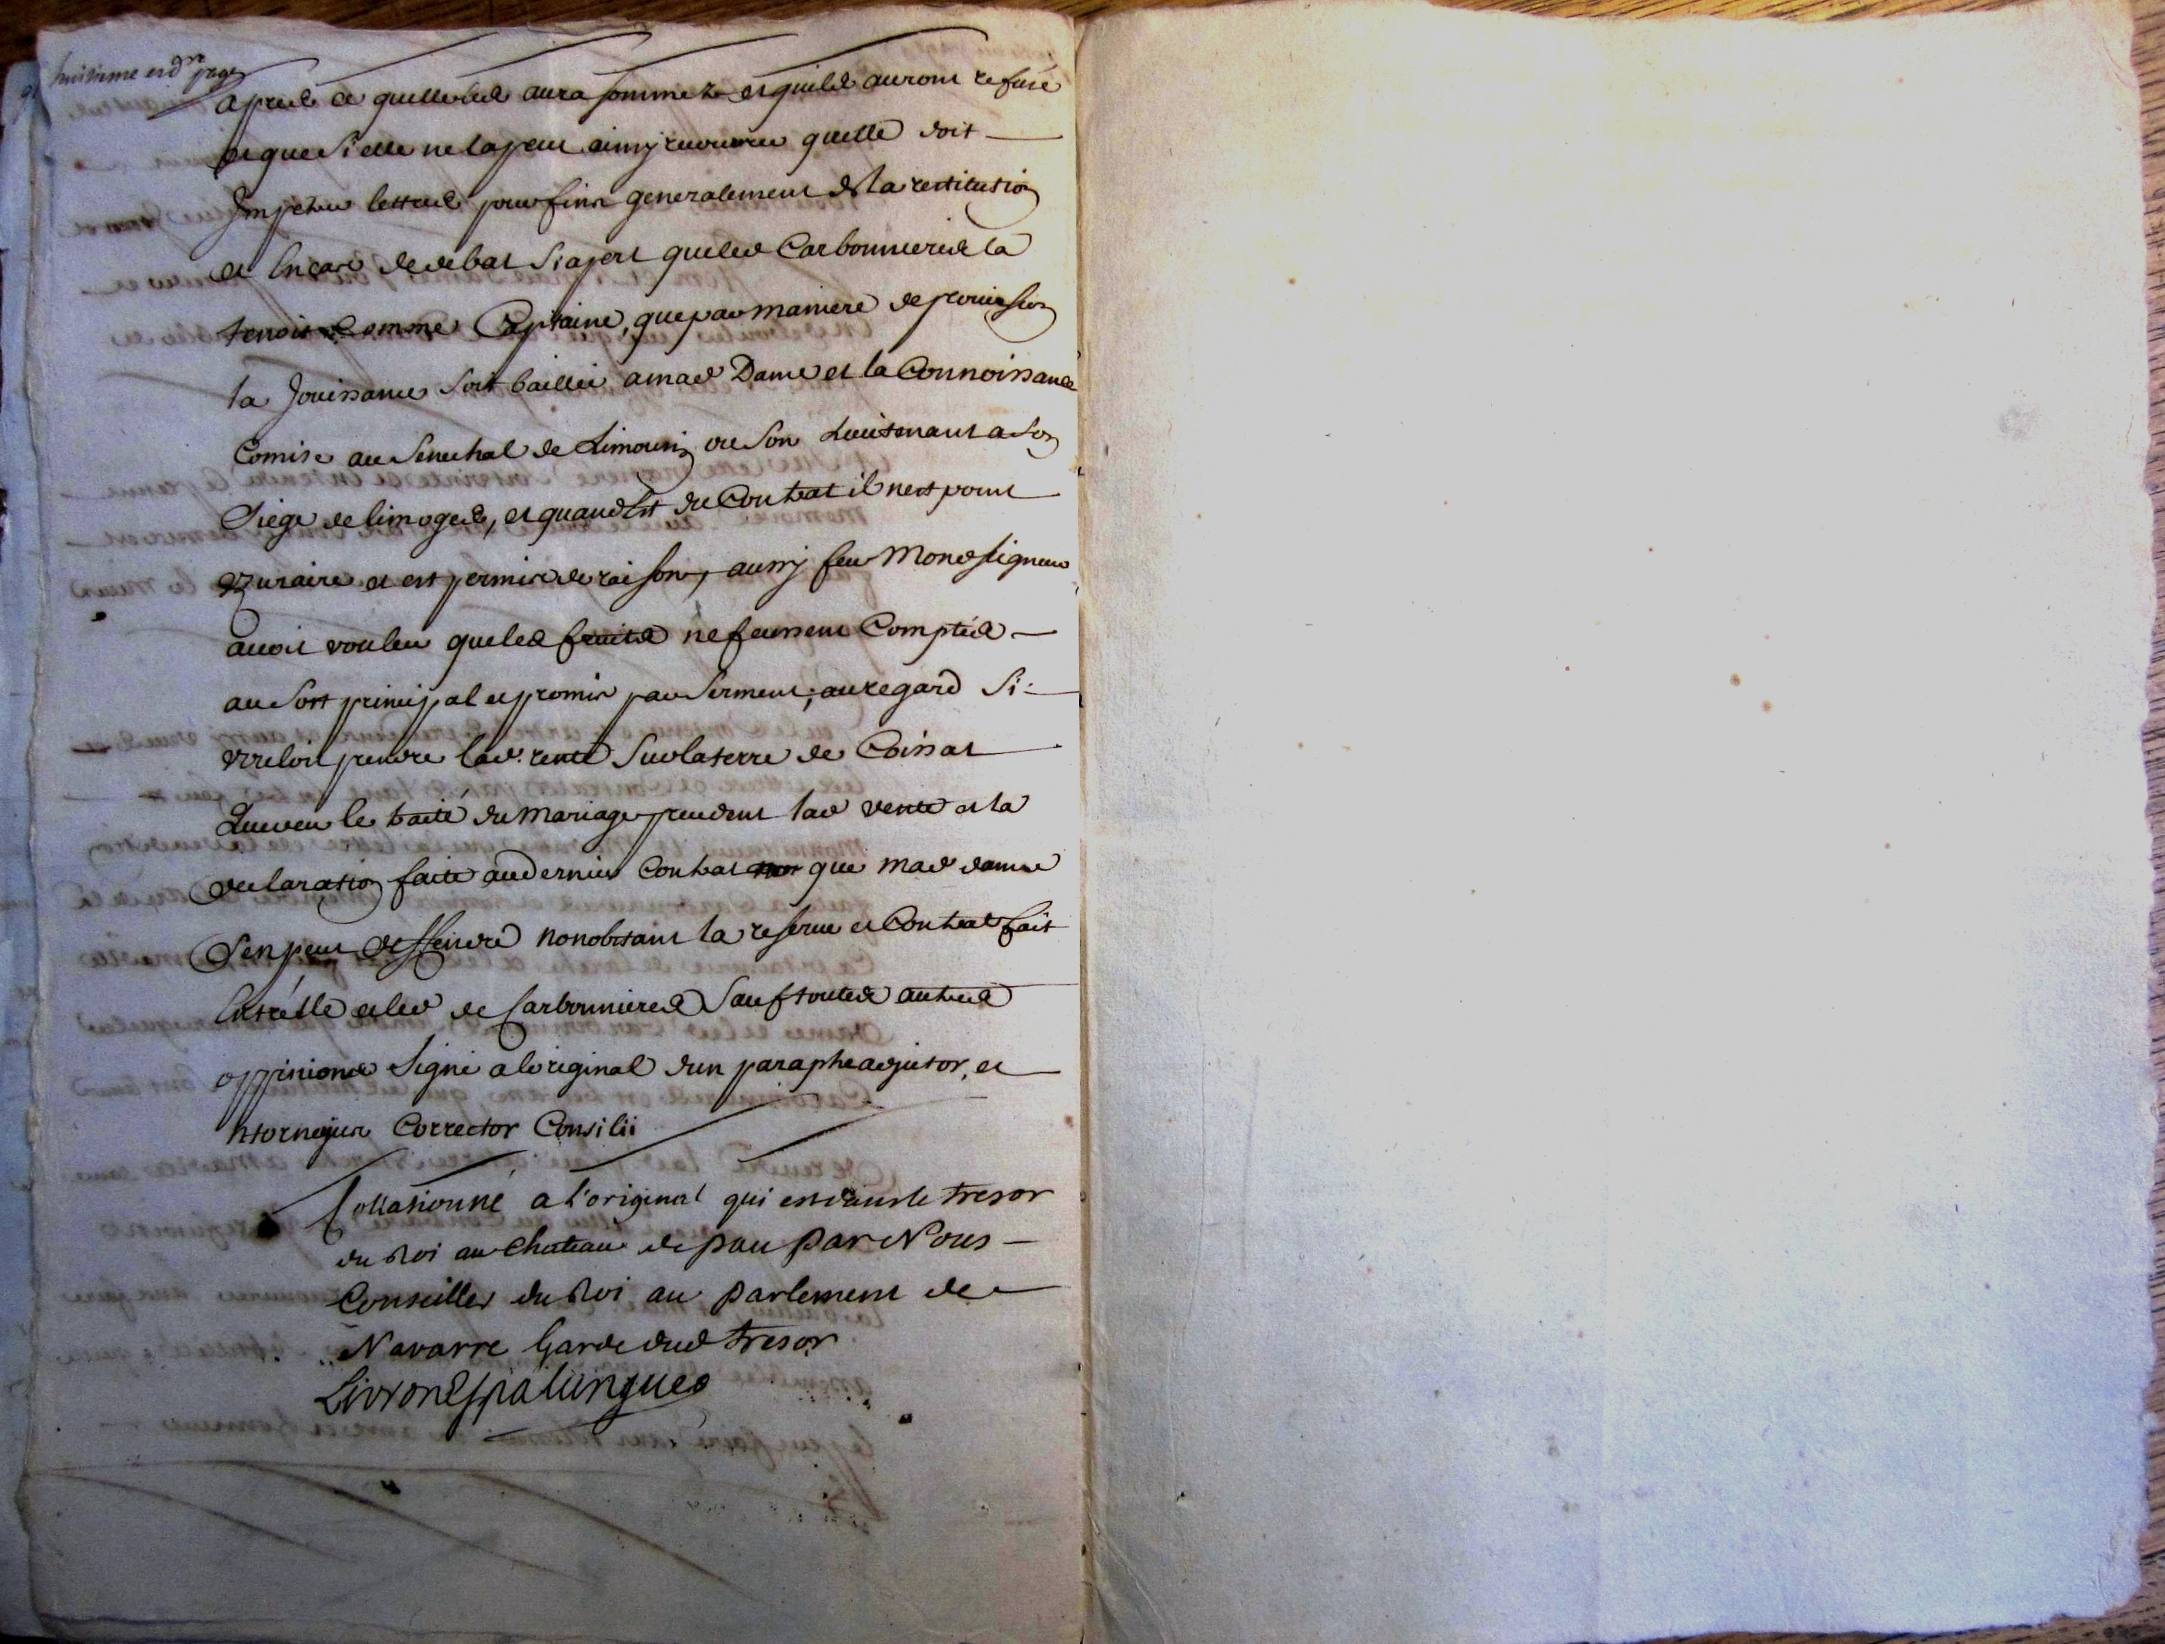 huitieme et d.re page
apres ce quelle les aura sommez et quils auront refusé
et que si elle ne la peut ainsy recouvrer quelle doit
Impetrer lettres pour finir generalement de la restitution
et en cas de debat siapert que led Carbonnieres la
tenoit Comme Captaine, que par maniere de provision
la Jouissance soit baillée a mad Dame et la Connoissance
Comise au Senechal de Limousin ou son Lieutenant a son
Siege de limoges, et quand est du Contrat il nest point
uzuraire et est permis de raison, aussy feu Mond signeur
avoit voulu que les fruits ne feussent Comptés
au sort principal et promis par serment; au regard si
vouloit prendre lad. rente sur la terre de Coissat
que veu le traité du mariage precedent lad vente et la
declaration faite aud dernier Contrat que mad dame
sen peut deffendre nonobstant la reserve et Contrat fait
Entrélle et led de Carbonnieres sauf toutes autres
oppinions signé a loriginal dun paraphe adjutor, et
Corrector Consilii
Collationné a l'original qui est dans le tresor
du Roi au Chateau de pau par Nous
Conseiller du Roi au parlement de
Navarre Garde dud tresor
Livron Espalungue